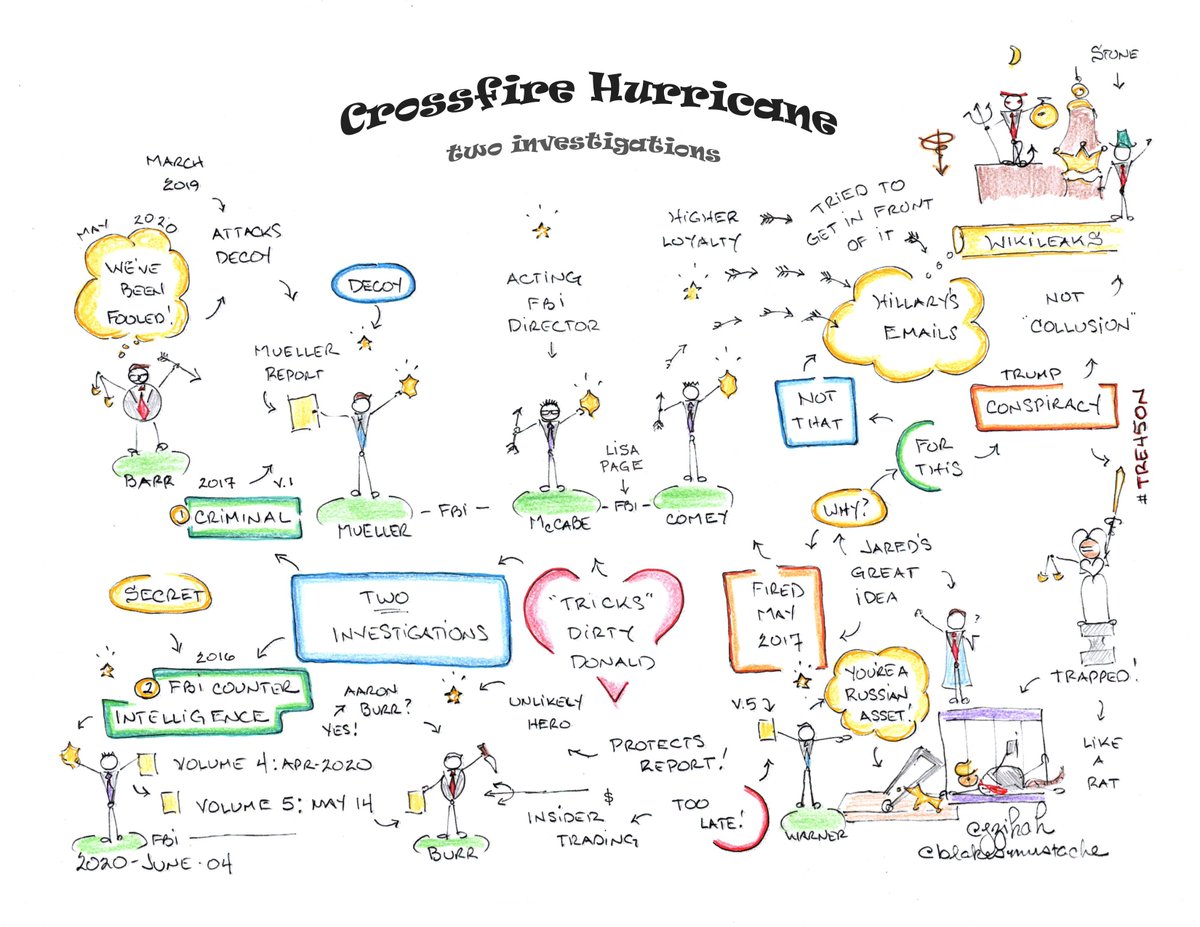 Crossfire Hurricane
two investigations
MARCH
2019
ATTACKS
DECOY
MAY 2020
WE'VE
BEEN
FOOLED!
BARR
DECOY
MUELLER
REPORT
2017 V.1
1 CRIMINAL
MUELLER
- FBI -
ACTING
FBI
DIRECTOR
McCABE
LISA
PAGE
- FBI -
COMEY
HIGHER
LOYALTY
TRIED TO
GET IN FRONT
OF IT
HILLARY'S
EMAILS
STONE
WIKILEAKS
NOT
"COLLUSION"
TRUMP
CONSPIRACY
#TRE45ON
NOT
THAT
FOR
THIS
WHY?
JARED'S
GREAT
IDEA
FIRED
MAY
2017
"TRICKS"
DIRTY
DONALD
TWO
INVESTIGATIONS
SECRET
2016
2 FBI COUNTER
INTELLIGENCE
AARON
BURR?
YES!
UNLIKELY
HERO
PROTECTS
REPORT!
VOLUME 4: APR-2020
VOLUME 5: MAY 14
FBI
2020-JUNE-04
BURR
$
INSIDER
TRADING
TOO
LATE!
V.5
WARNER
YOU'RE A
RUSSIAN
ASSET!
?
TRAPPED!
LIKE
A
RAT
@blakesmustache